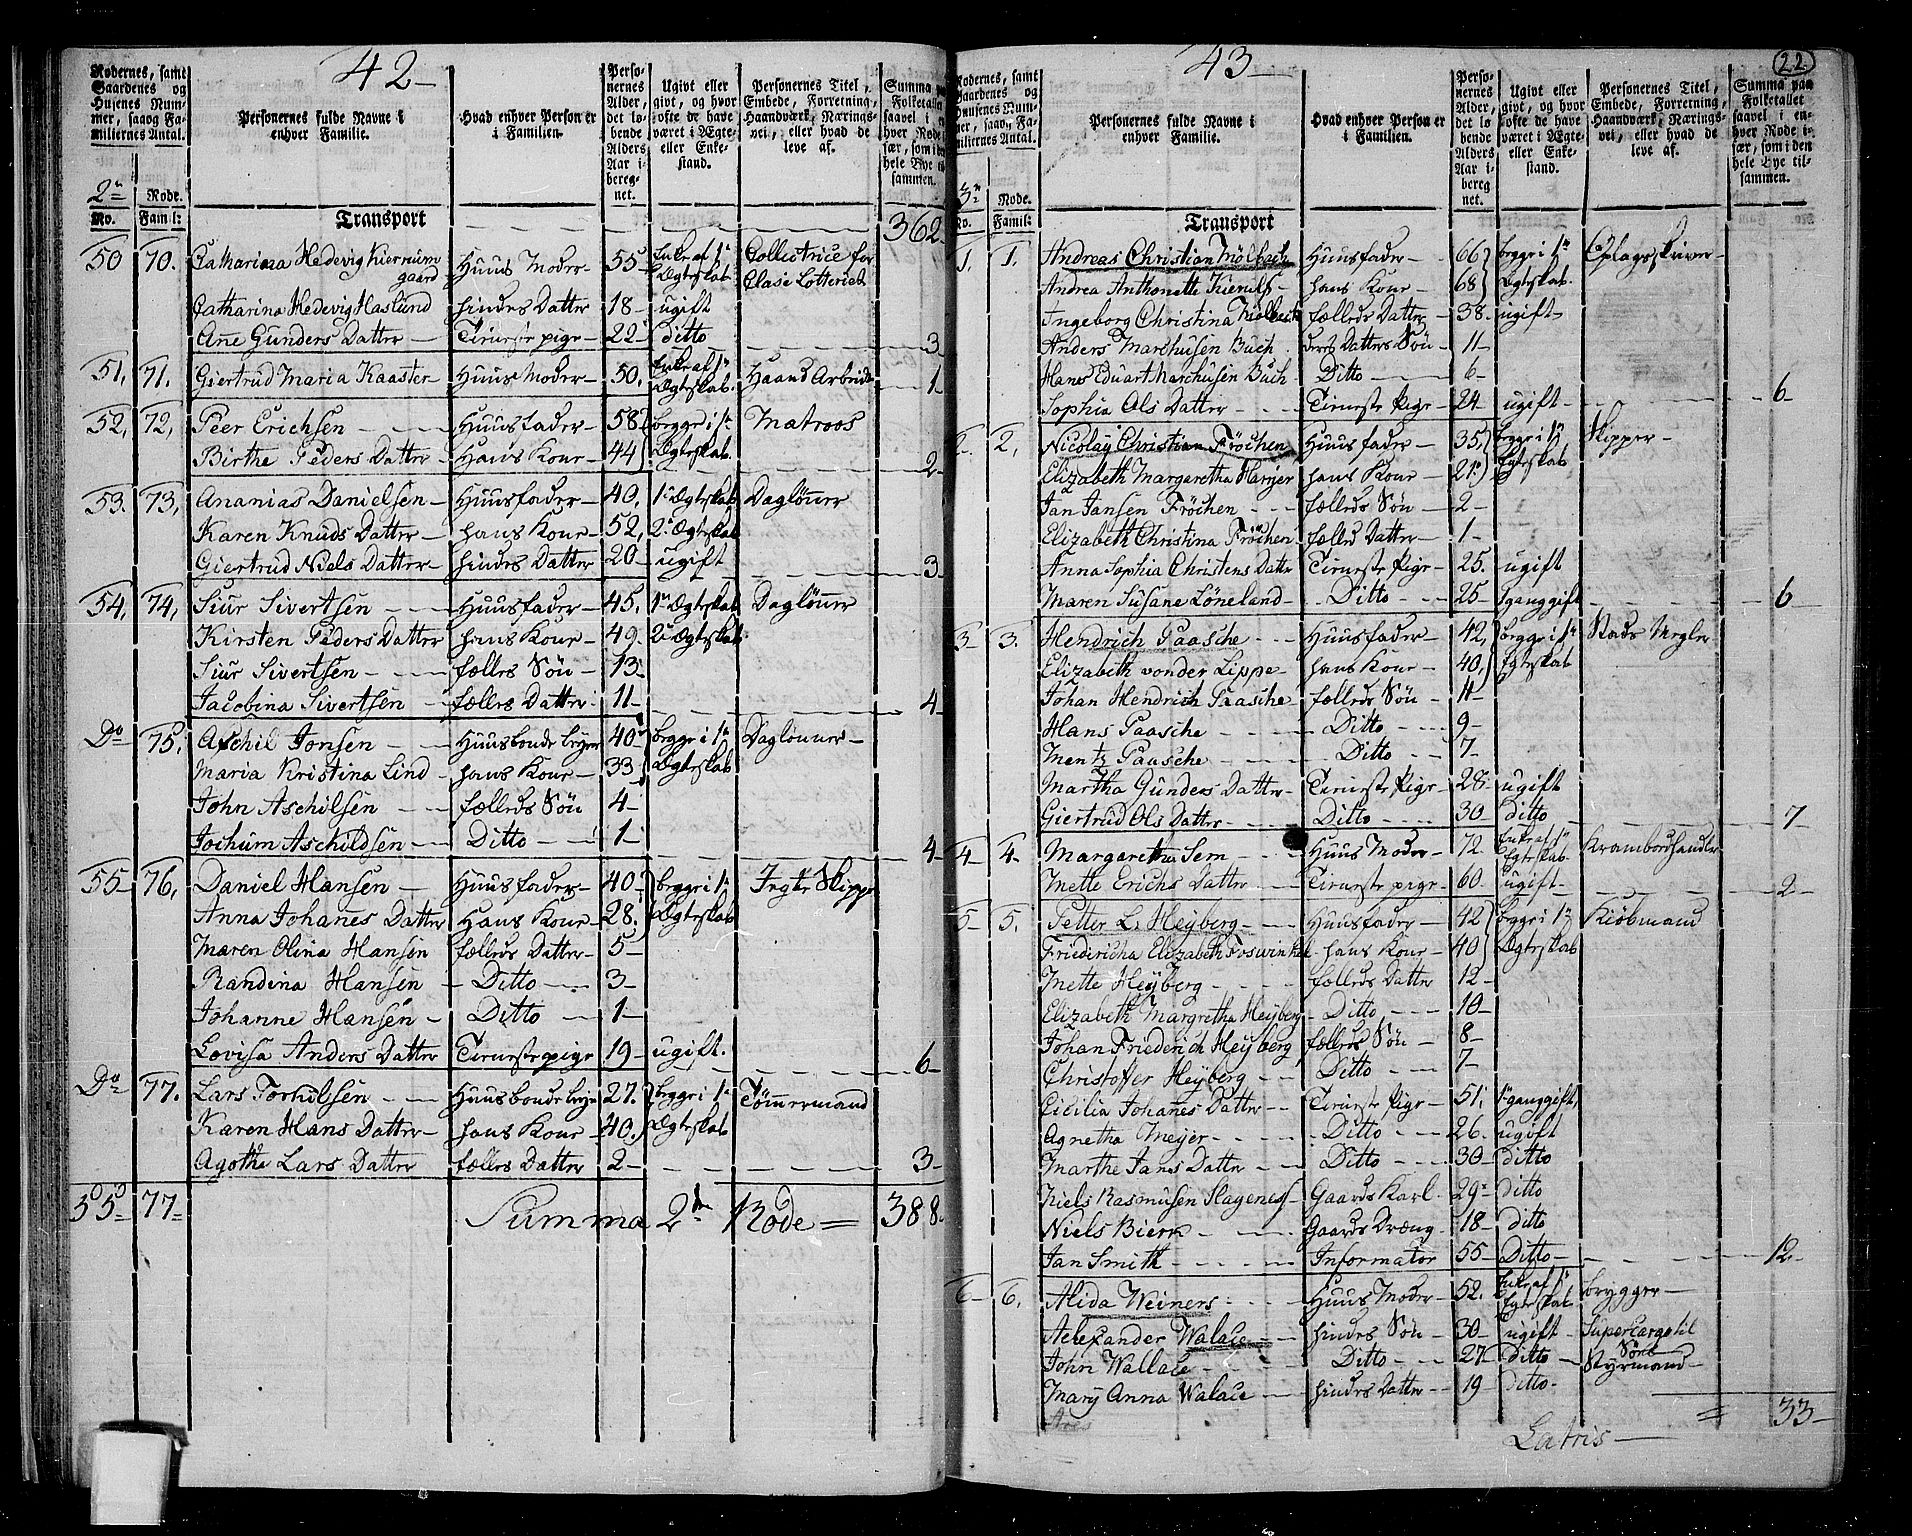 42
Rodernes, samt Gaardenes og Husenes Nummer, saaog Familiernes Antal.
Personernes fulde Navne i enhver Familie.
Hvad enhver Person er i Familien.
Personernes Alder, det løbende Alders Aar iberegnet.
Ugivt eller givt, og hvor ofte de have været i Ægte- eller Enkestand.
Personernes Titel, Embede, Forretning, Haandværk, Næringsvei, eller hvad de leve af.
Summa paa Folketallet saavel i enhver Rode især, som i den hele Bye tilsammen.
2de Rode.
No. Famil:
Transport 362
50 70. Catharina Hedevig Kiernumgaard Huus Moder 55 Enke af 1te Ægteskab Collectrice for Clase Lotteriet
Catharina Hedevig Haslund hindes Datter 18 ugift
Ane Gunders Datter Tieneste pige 22 Ditto 3
51. 71. Giertrud Maria Kaaster Huus Moder 50. Enke af 1te Ægteskab. Haand Arbeide 1
52, 72, Peer Erichsen Huusfader 58 begge i 1te Ægteskab Matroos
Birthe Peders Datter Hans Kone 44 2
53. 73, Ananias Danielsen Huusfader 40. 1te Ægteskab Dagløner
Karen Knuds Datter hans Kone 52, 2det Ægteskab
Giertrud Niels Datter hindes Datter 20 ugift 3
54, 74, Siur Sivertsen Huusfader 45. 1te Ægteskab Dagløner
Kirsten Peders Datter hans Kone 49. 2det Ægteskab
Siur Sivertsen fælles Søn 13
Jacobina Sivertsen fælles Datter 11 4
Do 75, Aschil Jonsen Huusbonde leyer 40 begge i 1te Ægteskab Dagløner
Maria Kristina Lind hans Kone 33
John Aschilsen fælleds Søn 4
Jochum Aschildsen Ditto 1 4
55 76, Daniel Hansen Huusfader 40 begge i 1te Ægteskab Jegte Skipper
Anna Johanes Datter Hans Kone 28.
Maren Olina Hansen fælleds Datter 5
Randina Hansen Ditto 3
Johanne Hansen Ditto 1
Lovisa Anders Datter Tienestepige 19 ugift. 6
Do 77. Lars Torkilsen Huusbonde leye 27. begge i 1te Ægteskab Tømmermand
Karen Hans Datter hans Kone 40.
Agothe Lars Datter fælles Datter 2 3
55 77 Summa 2den Rode = 388
43
22
Rodernes, samt Gaardenes og Husenes Nummer, saaog Familiernes Antal.
Personernes fulde Navne i enhver Familie.
Hvad enhver Person er i Familien.
Personernes Alder, det løbende Alders Aar iberegnet.
Ugivt eller givt, og hvor ofte de have været i Ægte- eller Enkestand.
Personernes Titel, Embede, Forretning, Haandværk, Næringsvei, eller hvad de leve af.
Summa paa Folketallet saavel i enhver Rode især, som i den hele Bye tilsammen.
3de Rode.
No. Famil:
Transport
1. 1. Andreas Christian Mölbach Huusfader 66 begge i 1te Ægteskab. Oplagsskriver
Andrea Anthonette Kierulf hans Kone 68
Ingeborg Christina Mølbach fælleds Datter 38. ugift
Anders Marchusen Buch deres Datters Søn 11
Hans Eduart Marchusen Buch Ditto 6
Sophia Ols Datter Tieneste Pige 24 ugift 6
2. 2, Nicolay Christian Fröchen Huusfader 35 begge i 1te Egteskab Skipper
Elizabeth Margaretha Harmer hans Kone 21.
Jan Jansen Fröchen fælleds Søn 2
Elizabeth Christina Fröchen fælled Datter 1
Anna Sophia Christens Datter Tieneste Pige 25. ugift
Maren Susane Löneland Ditto 25 1gang gift 6
3 3. Hendrich Paasche Huusfader 42, begge i 1te Egteskab Stads Megler
Elizabeth vonder Lippe hans Kone 40,
Johan Hendrich Paasche fælleds Søn 11
Hans Paasche Ditto 9
Mentz Paasche Ditto 7
Martha Gunders Datter Tieneste Pige 28 ugift
Giertrud Ols Datter Ditto 30 ditto 7
4 4 Margaretha Sem Huus Moder 72 Enke af 1te Egteskab. Krambodhandler
Mette Erichs Datter Tieneste pige 60. ugift 2
5 5. Petter L. Heyberg Huusfader 42 begge i 1te Ægteskab Kiöbmand
Friedericha Elizabeth Foswinkel hans Kone 40
Mette Heyberg fælleds Datter 12
Elizabeth Margretha Heyberg Ditto 10
Johan Friederich Heyberg fælleds Søn 8
Christoffer Heyberg Ditto 7
Cicilia Johanes Datter Tieneste Pige 51, 1 gang gift,
Agnetha Meyer Ditto 26. ugift
Marthe Jans Datter Ditto 30 ditto
Niels Rasmusen Slagenes Gaards Karl 29 ditto
Niels Bierk Gaards Dræng 18 ditto
Jan Smith Informator 55 Ditto 12
6 6. Alida Weiners Huus Moder 52. Enke af 1te Egteskab brygger
Alexander Walace hindes Søn 30 ugift Supercargo til Søes
John Wallace Ditto 27 ditto Styrmand
Mary Anna Walace hindes Datter 19 ditto
= 33
Latris